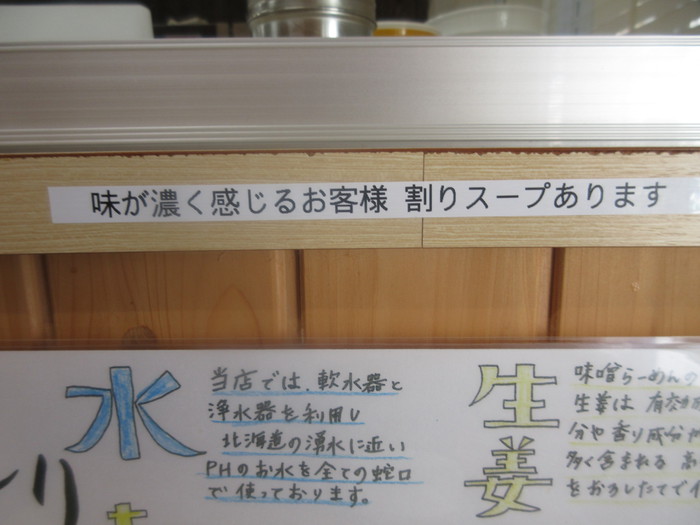 味が濃く感じるお客様 割りスープあります
水
当店では、軟水器と
浄水器を利用し
北海道の湧水に近い
PHのお水を全ての蛇口
で使っております。
生姜
味噌らーめんの
生姜は 有効
分や香り成分が
多く含まれる
をおろしたてで